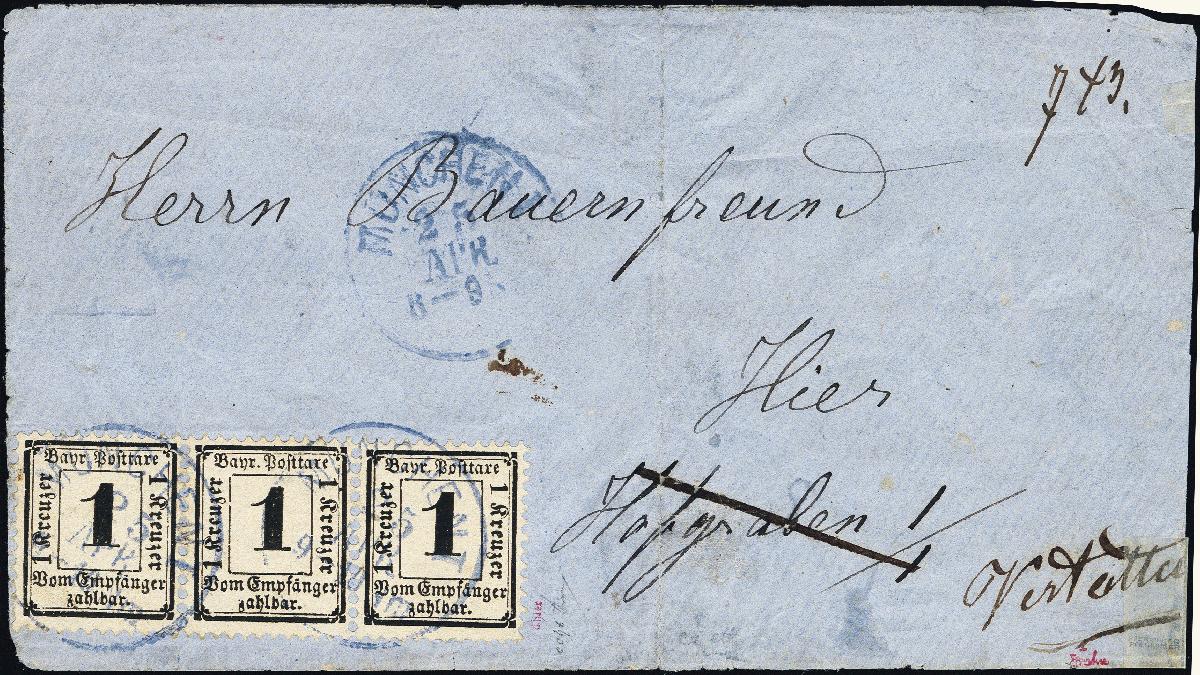 743.
Herrn Bauernfreund
MÜNCHEN
APR
8—9
Hier
Hofgraben 1/1
Bayr. Posttaxe
1 Kreuzer
1
1 Kreuzer
Vom Empfänger
zahlbar.
Bayr. Posttaxe
1 Kreuzer
1
1 Kreuzer
Vom Empfänger
zahlbar.
Bayr. Posttaxe
1 Kreuzer
1
1 Kreuzer
Vom Empfänger
zahlbar.